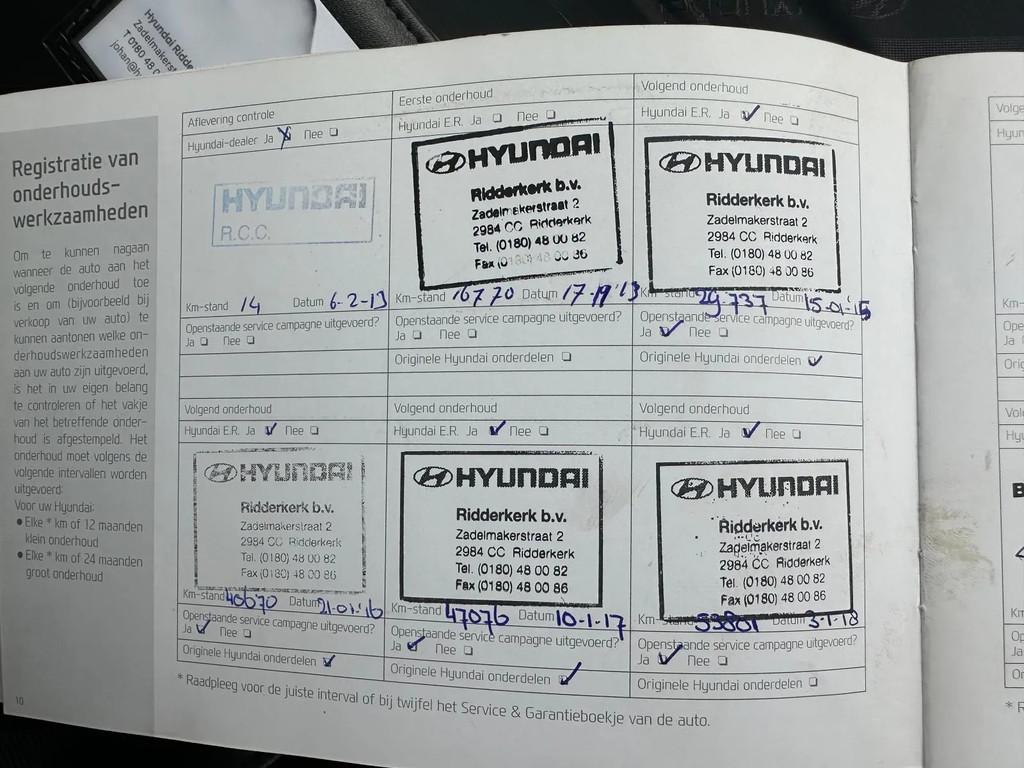 Hyundai Ridde
Zadelmakerst
T 0180 48 0
johan@h
Registratie van
onderhouds-
werkzaamheden
Om te kunnen nagaan
wanneer de auto aan het
volgende onderhoud toe
is en om (bijvoorbeeld bij
verkoop van uw auto) te
kunnen aantonen welke on-
derhoudswerkzaamheden
aan uw auto zijn uitgevoerd,
is het in uw eigen belang
te controleren of het vakje
van het betreffende onder-
houd is afgestempeld. Het
onderhoud moet volgens de
volgende intervallen worden
uitgevoerd:
Voor uw Hyundai:
• Elke * km of 12 maanden
klein onderhoud
• Elke * km of 24 maanden
groot onderhoud
10
Aflevering controle
Hyundai-dealer Ja Nee
HYUNDAI
R.C.C.
Km-stand 14 Datum 6-2-13
Openstaande service campagne uitgevoerd?
Ja Nee
Eerste onderhoud
Hyundai E.R. Ja Nee
HYUNDAI
Ridderkerk b.v.
Zadelmakerstraat 2
2984 CC Ridderkerk
Tel. (0180) 48 00 82
Fax (0180) 48 00 86
Km-stand 16770 Datum
Openstaande service campagne uitgevoerd?
Ja Nee
Originele Hyundai onderdelen
Volgend onderhoud
Hyundai E.R. Ja Nee
HYUNDAI
Ridderkerk b.v.
Zadelmakerstraat 2
2984 CC Ridderkerk
Tel. (0180) 48 00 82
Fax (0180) 48 00 86
Km-stand 29.737 Datum 15-01-15
Openstaande service campagne uitgevoerd?
Ja Nee
Originele Hyundai onderdelen
Volgend onderhoud
Hyundai E.R. Ja Nee
HYUNDAI
Ridderkerk b.v.
Zadelmakerstraat 2
2984 CC Ridderkerk
Tel. (0180) 48 00 82
Fax (0180) 48 00 86
Km-stand 40670 Datum 21-01-16
Openstaande service campagne uitgevoerd?
Ja Nee
Originele Hyundai onderdelen
Volgend onderhoud
Hyundai E.R. Ja Nee
HYUNDAI
Ridderkerk b.v.
Zadelmakerstraat 2
2984 CC Ridderkerk
Tel. (0180) 48 00 82
Fax (0180) 48 00 86
Km-stand 47076 Datum 10-1-17
Openstaande service campagne uitgevoerd?
Ja Nee
Originele Hyundai onderdelen
Volgend onderhoud
Hyundai E.R. Ja Nee
HYUNDAI
Ridderkerk b.v.
Zadelmakerstraat 2
2984 CC Ridderkerk
Tel. (0180) 48 00 82
Fax (0180) 48 00 86
Km-stand 53801 Datum 3-1-18
Openstaande service campagne uitgevoerd?
Ja Nee
Originele Hyundai onderdelen
* Raadpleeg voor de juiste interval of bij twijfel het Service & Garantieboekje van de auto.